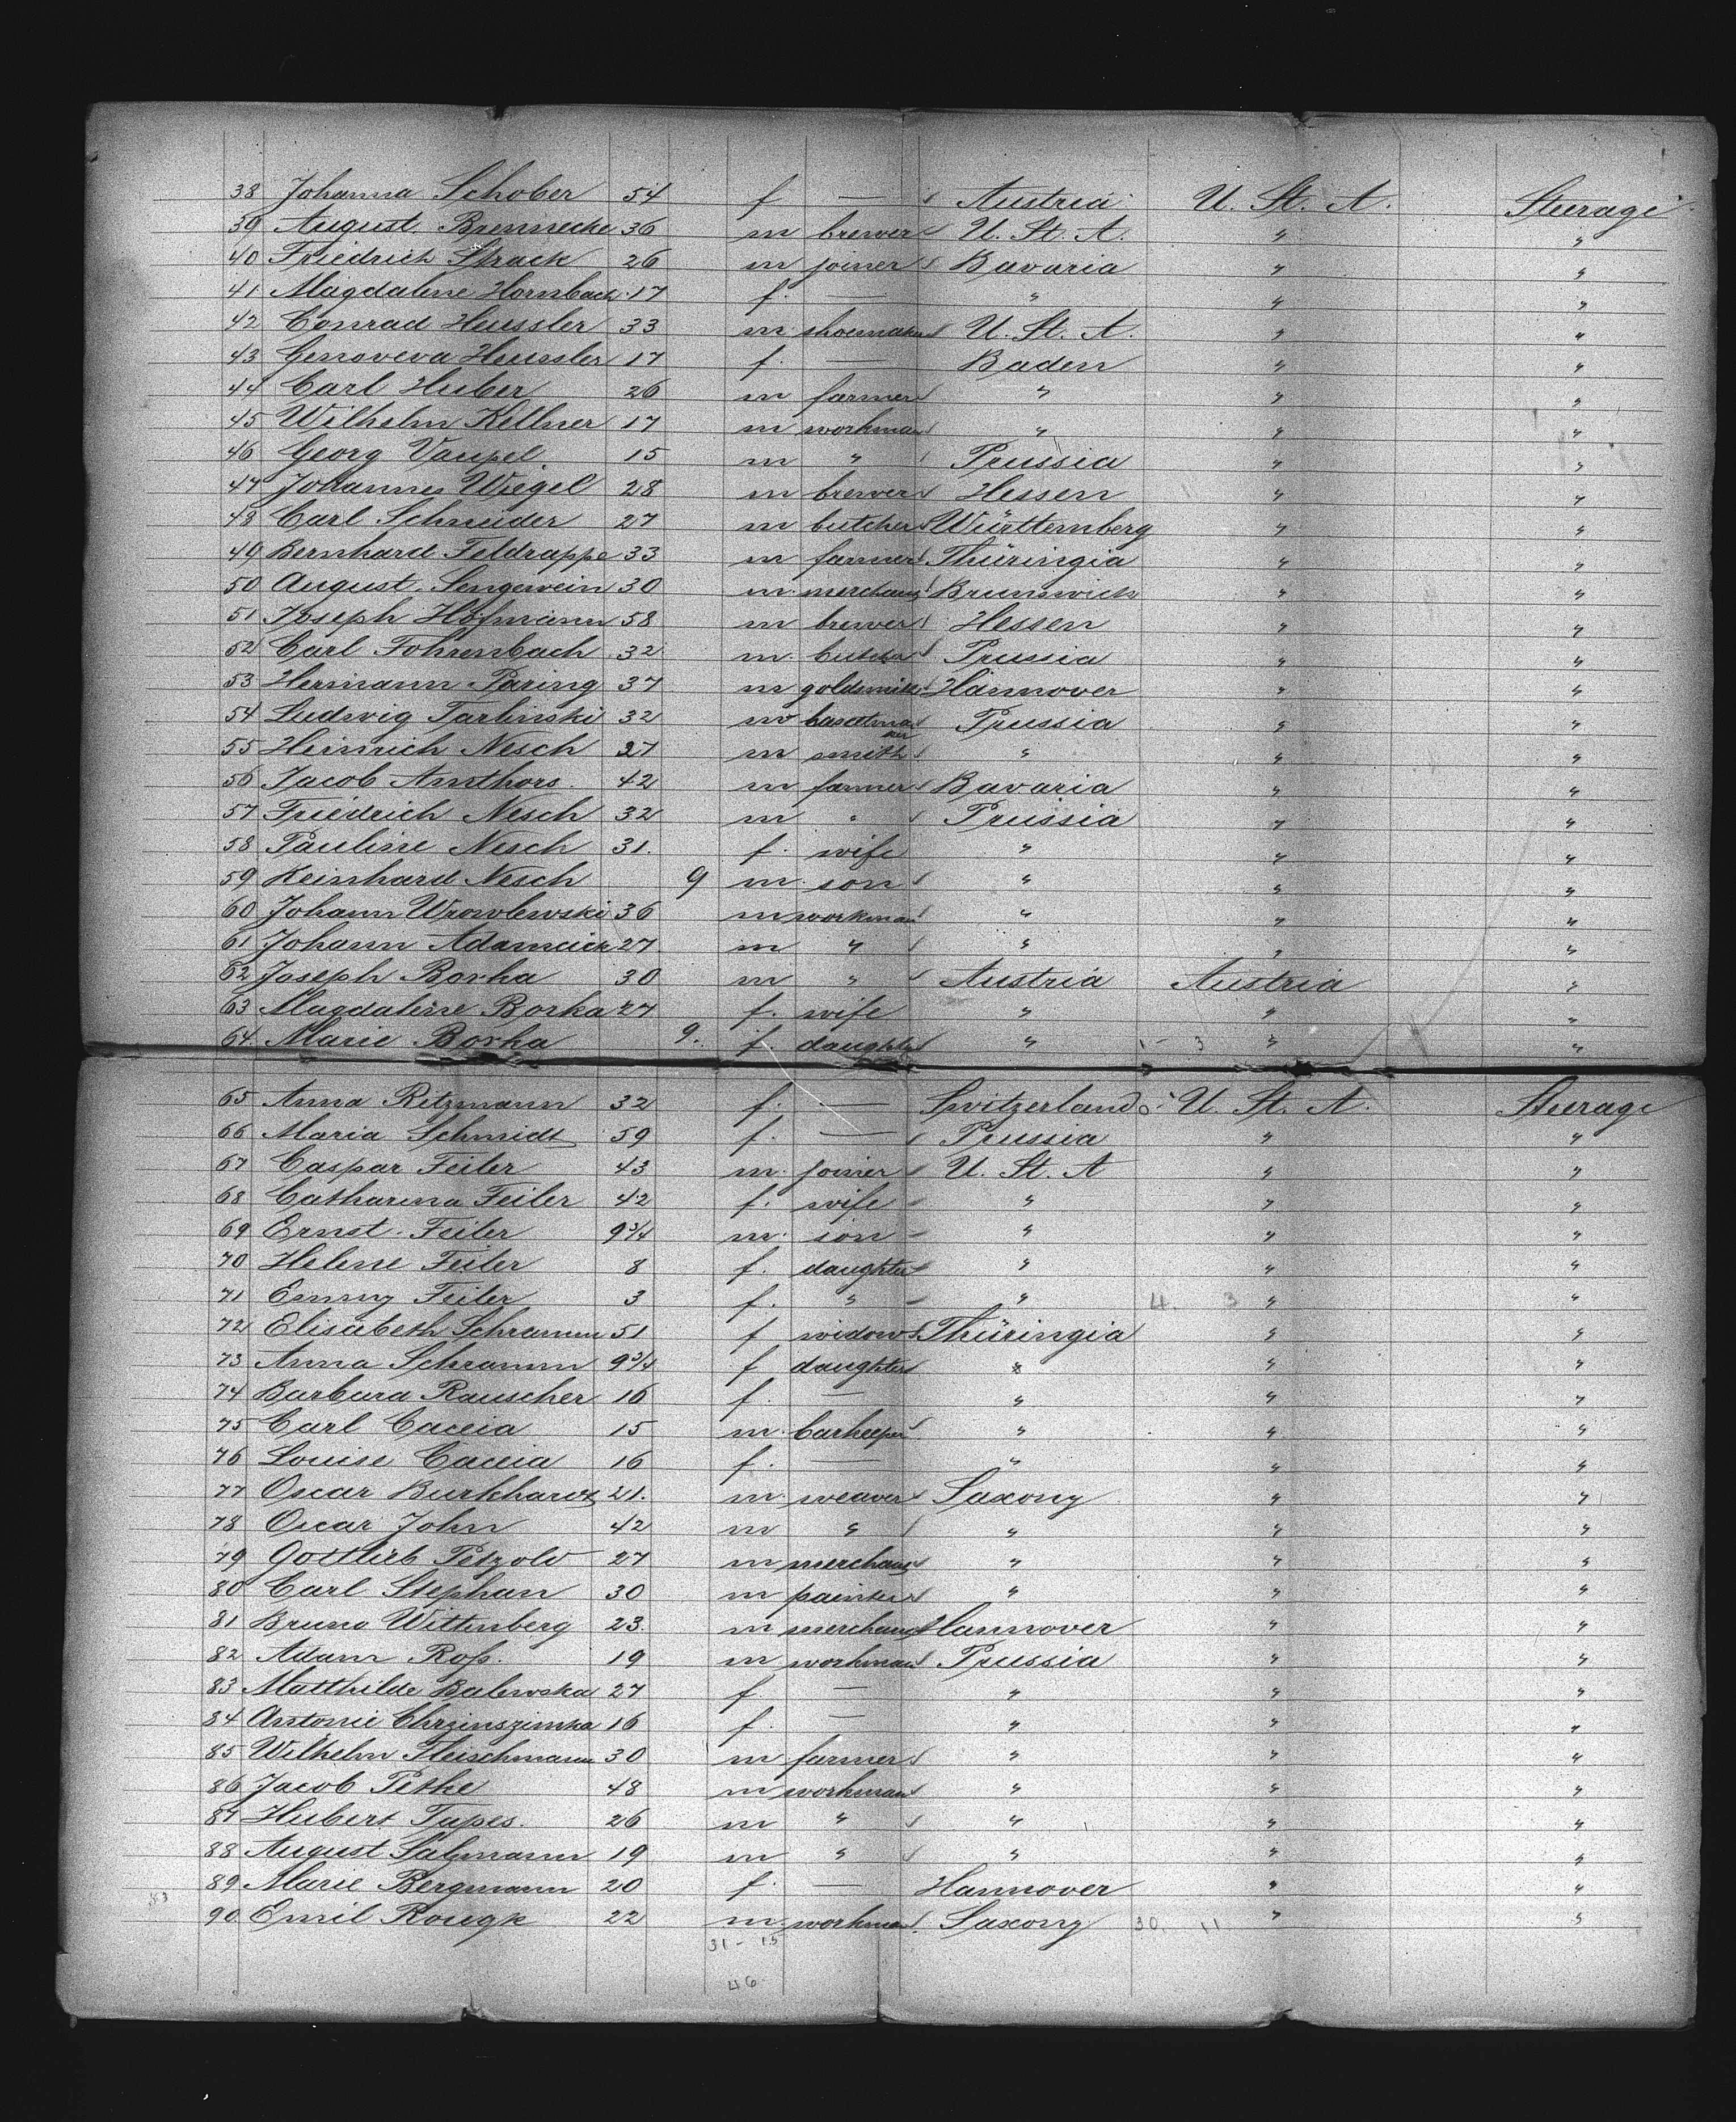 38 Johanna Schober 54 f — Austria U. St. A. Steerage
39 August Brennecke 36 m brewer U. St. A. " "
40 Friedrich Strack 26 m joiner Bavaria " "
41 Magdalene Hornbach 17 f. — " " "
42 Conrad Heussler 33 m shoemaker U. St. A. " "
43 Genoveva Heussler 17 f. — Baden " "
44 Carl Huber 26 m farmer " " "
45 Wilhelm Kellner 17 m workman " " "
46 Georg Vaupel 15 m " Prussia " "
47 Johannes Wiegel 28 m brewer Hessen " "
48 Carl Schneider 27 m butcher Württemberg " "
49 Bernhard Feldrappe 33 m farmer Thüringia " "
50 August Sengewein 30 m merchant Brunswick " "
51 Joseph Hofmann 58 m brewer Hessen " "
52 Carl Fohrenbach 32 m. butcher Prussia " "
53 Hermann Paring 37 m goldsmith Hannover " "
54 Ludwig Tarlinski 32 m Prussia " "
55 Heinrich Nesch 27 m smith " " "
56 Jacob Amthors 42 m farmer Bavaria " "
57 Friedrich Nesch 32 m " Prussia " "
58 Pauline Nesch 31. f. wife " " "
59 Reinhard Nesch 9 m son " " "
60 Johann Wrowlewski 36 m workman " " "
61 Johann 27 m " " " "
62 Joseph Borka 30 m " Austria Austria "
63 Magdalene Borka 27 f. wife " " "
64 Marie Borka 9. f. daughter " 1 - 3 " "
65 Anna Ritzmann 32 f. — Switzerland U. St. A. Steerage
66 Maria Schmidt 59 f. — Prussia " "
67 Caspar Feiler 43 m. joiner U. St. A " "
68 Catharina Feiler 42 f. wife " " "
69 Ernst Feiler 9 3/4 m. son " " "
70 Helene Feiler 8 f. daughter " " "
71 Emmy Feiler 3 f. " " 4. 3 " "
72 Elisabeth Schramm 51 f widow Thüringia " "
73 Anna Schramm 9 3/4 f daughter " " "
74 Barbara Rauscher 16 f. — " " "
75 Carl Caccia 15 m. barkeeper " " "
76 Louise Caccia 16 f. — " " "
77 Oscar Burkhardt 21. m. weaver Saxony " "
78 Oscar John 42 m " " " "
79 Gottlieb Petzold 27 m merchant " " "
80 Carl Stephan 30 m painter " " "
81 Bruno Wittenberg 23. m merchant Hannover " "
82 Adam Roß. 19 m workman Prussia " "
83 Matthilde Balewska 27 f — " " "
84 Antonie 16 f. — " " "
85 Wilhelm Fleischmann 30 m farmer " " "
86 Jacob Pethe 48 m workman " " "
87 Hubert Tupes. 26 m " " " "
88 August Salzmann 19 m " " " "
89 Marie Bergmann 20 f. — Hannover " "
90 Emil 22 m. workman Saxony 30. 11 " "
31 - 15
46